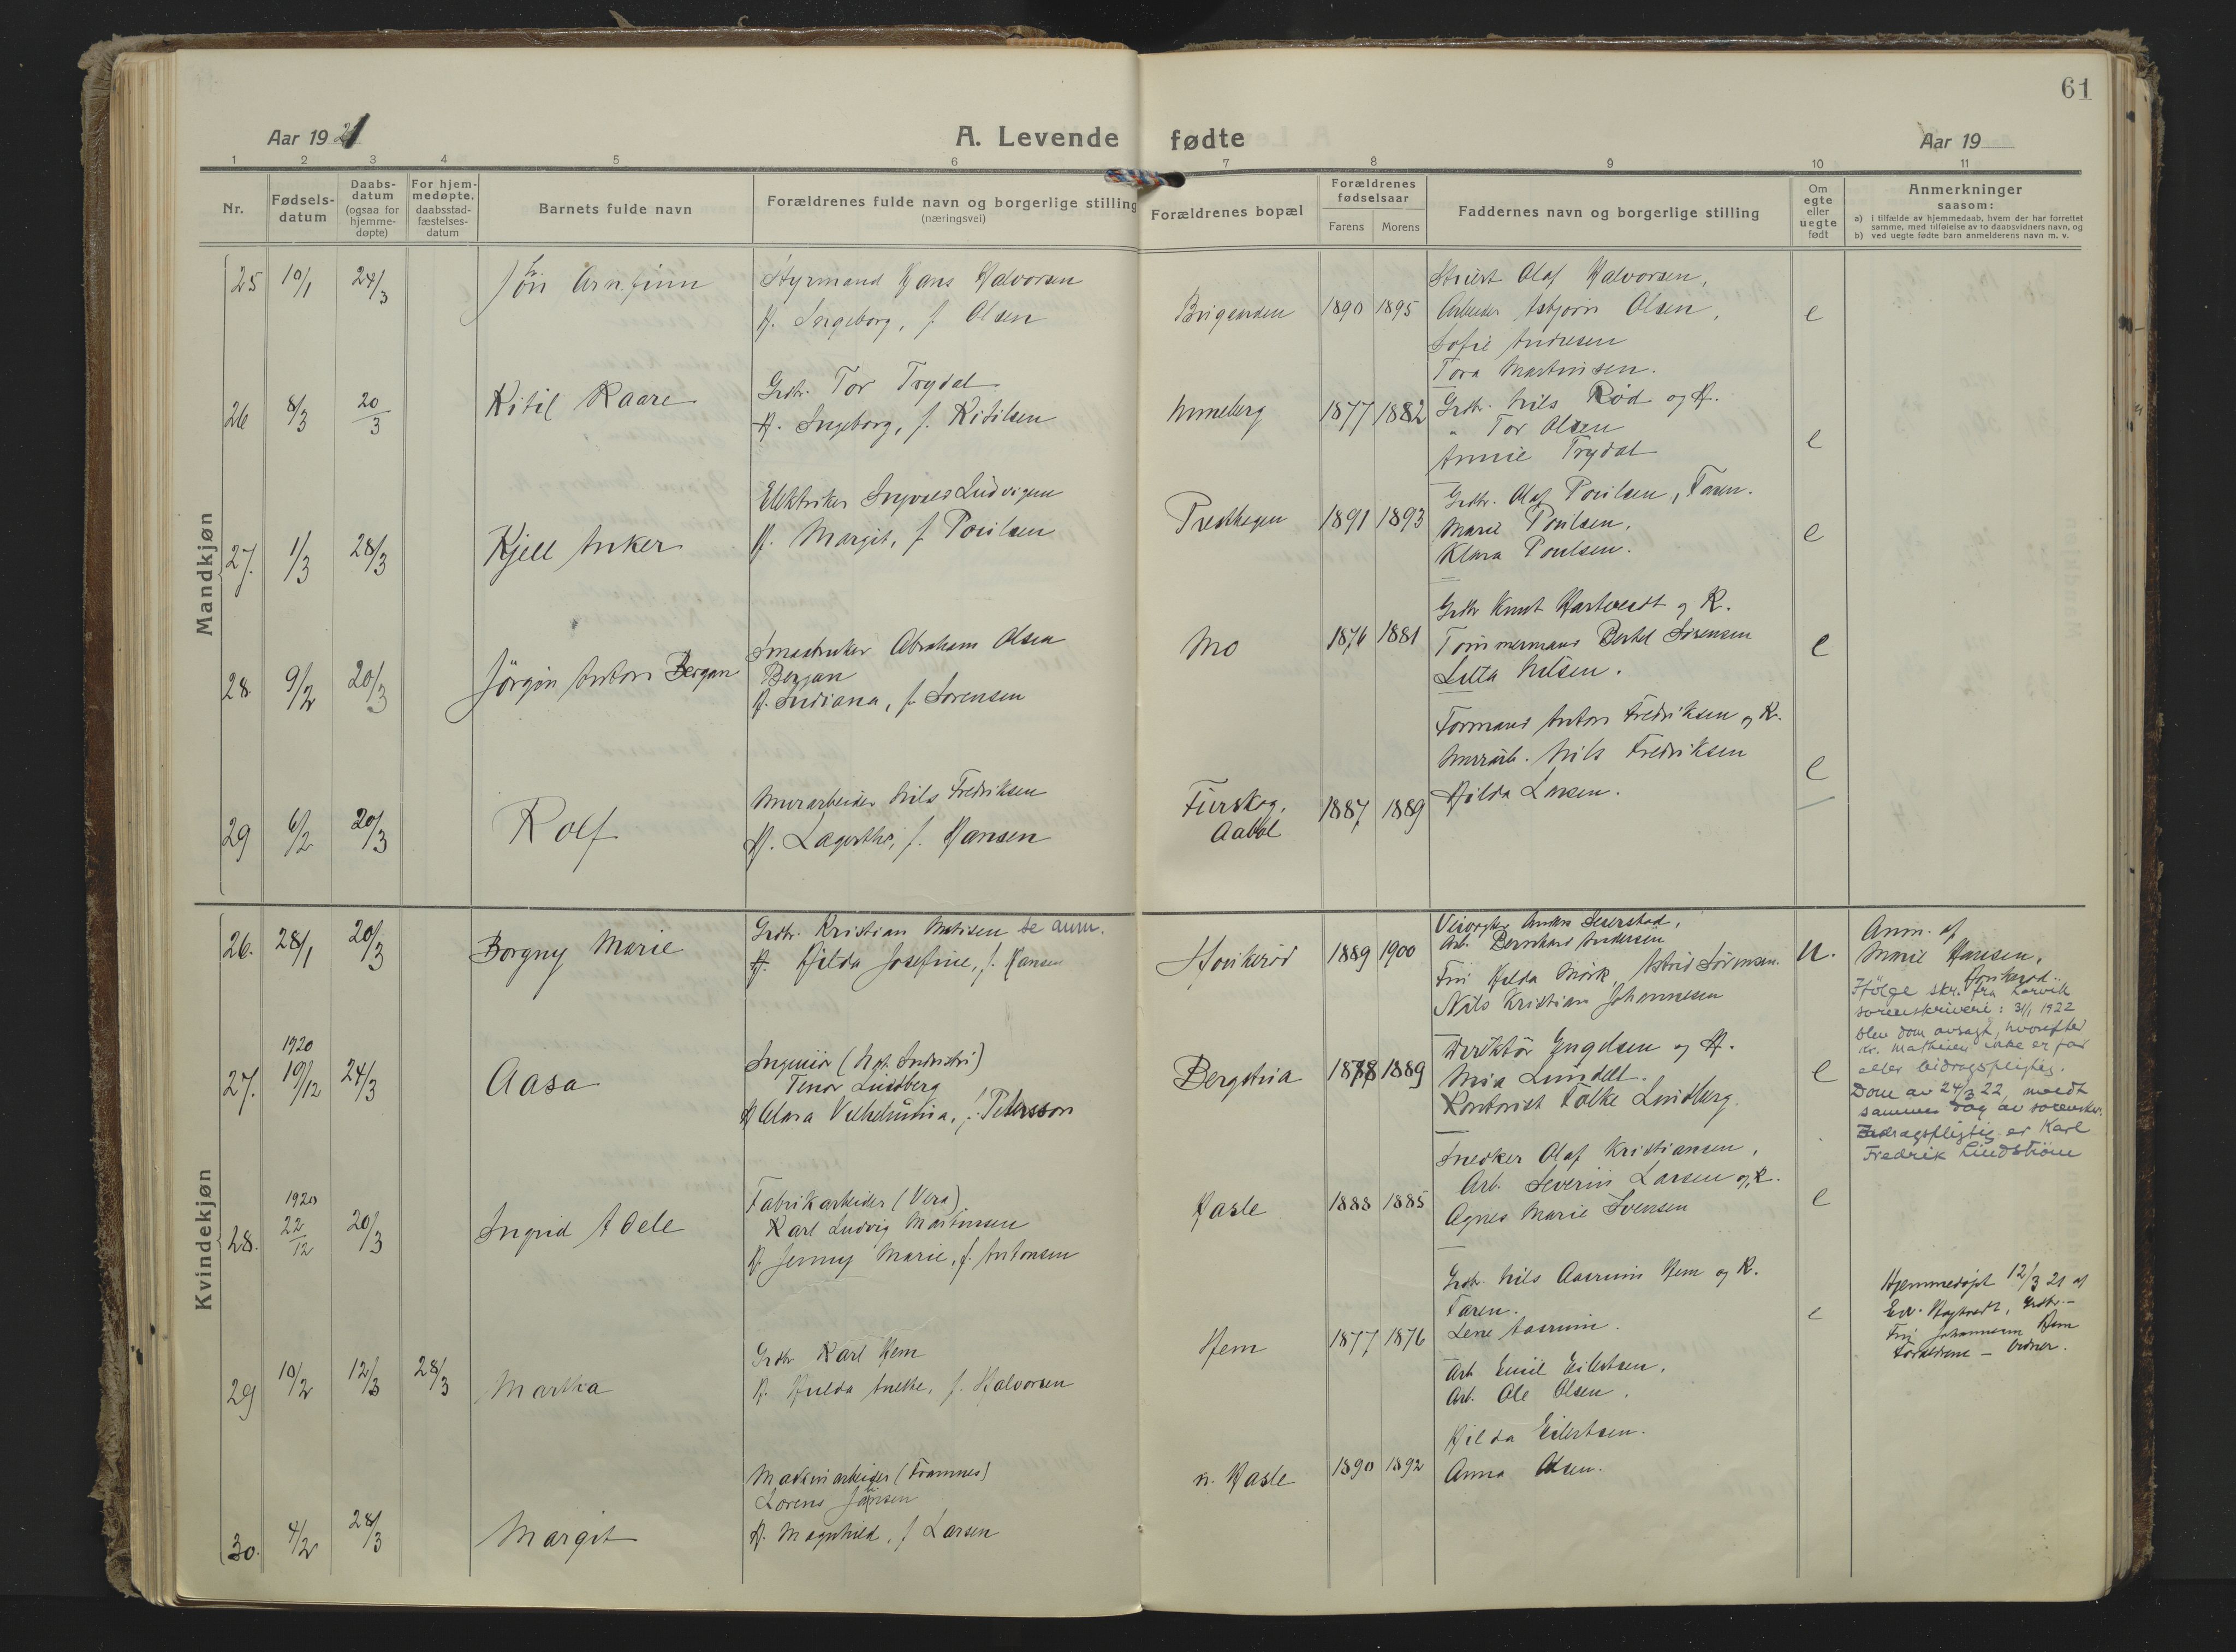 61
Aar 1921
A. Levende fødte
Aar 19
1 2 3 4 5 6 7 8 9 10 11
Nr.
Fødsels-
datum
Daabs-
datum
(ogsaa for
hjemme-
døpte)
For hjem-
medøpte,
daabsstad-
fæstelses-
datum
Barnets fulde navn
Forældrenes fulde navn og borgerlige stilling
(næringsvei)
Forældrenes bopæl
Forældrenes
fødselsaar
Farens Morens
Faddernes navn og borgerlige stilling
Om
egte
eller
uegte
født
Anmerkninger
saasom:
a) i tilfælde av hjemmedaab, hvem der har forrettet
samme, med tilføielse av to daabsvidners navn, og
b) ved uegte fødte barn anmelderens navn m. v.
Mandkjøn
25 10/1 24/3
Arnfinn
Styrmand Hans Halvorsen
H. Ingeborg, f. Olsen
1890 1895
Olaf Halvorsen,
Arbeider Asbjørn Olsen,
Sofie Andresen
Tora Martinsen.
e
26 8/3 20/3
Kitil Kaare
Grdbr. Tor Trydal
H. Ingeborg, f. Kitilsen
Unneberg
1877 1882
Grdbr. Nils Rød og H.
" Tor Olsen
Annie Trydal
e
27. 1/3 28/3
Kjell Anker
Elektriker Ingvald Ludvigsen
H. Margit, f. Poulsen
Presthagen
1891 1893
Grdbr. Olaf Poulsen, Faren.
Marie Poulsen,
Klara Poulsen.
e
28. 9/2 20/3
Jörgen Anton Bergan
Smaabruker Abraham Olsen
Bergan
H. Indiana, f. Sörensen
Mo
1876 1881
Grdbr Knut Hartvedt og K.
Tømmermand Bertel Sörensen
Nilsen.
e
29 6/2 20/3
Rolf
Murarbeider Nils Fredriksen
H. Lagerthe, f. Hansen
Furskog,
Aabol
1887 1889
Formand Anton Fredriksen og K.
Murarb. Nils Fredriksen
Hilda Larsen.
e
Kvindekjøn
26. 28/1 20/3
Borgny Marie
Grdbr. Kristian Matisen se anm.
H. Hilda Josefine, f. Hansen
1889 1900
Arb. Bernhard Andersen
Fru Hilda Mörk, Astrid Sörensen.
Nils Kristian Johannesen
u.
Anm. af
Marie Hansen,
Ifölge skr. fra Larvik
sorenskriveri: 31/1 1922
blev dom avsagt, hvorefter
kr. Mathisen ikke er far
eller bidragspligtig.
Dom av 24/3 22, meldt
samme dag av sorenskr.
Bidragspligtig er Karl
Fredrik Lindström
27. 1920
19/12 24/3
Aasa
Ingeniör
Tenor Lindberg
H Clara Vilhelmina, f. Petersson
Bergstua
1878 1889
Direktör Engelsen og H.
Mia Lundell.
Kontorist Folke Lindberg.
e
28. 1920
22/12 20/3
Ingrid Adele
Fabrikarbeider (Vera)
Karl Ludvig Martinsen
H. Jenny Marie, f. Antonsen
Hasle
1888 1885
Snedker Olaf Kristiansen,
Arb. Severin Larsen og K.
Agnes Marie Svensen
e
29 10/2 12/3 28/3
Martha
Grdbr Karl Hem
H. Hulda Anette, f. Halvorsen
Hem
1877 1876
Grdbr. Nils Aasrum Hem og K.
Faren.
Lene Aasrum.
e
Hjemmedöpt 12/3 21 af
Johannesen Hem
Forældrene – Vidner.
30. 4/2 28/3
Margit
Maskinarbeider (Framnes)
Lorens Jansen
H. Magnhild, f. Larsen
n. Hasle
1890 1892
Arb. Emil Eilertsen.
Arb. Ole Olsen.
Hilda Eilertsen.
Anna Olsen.